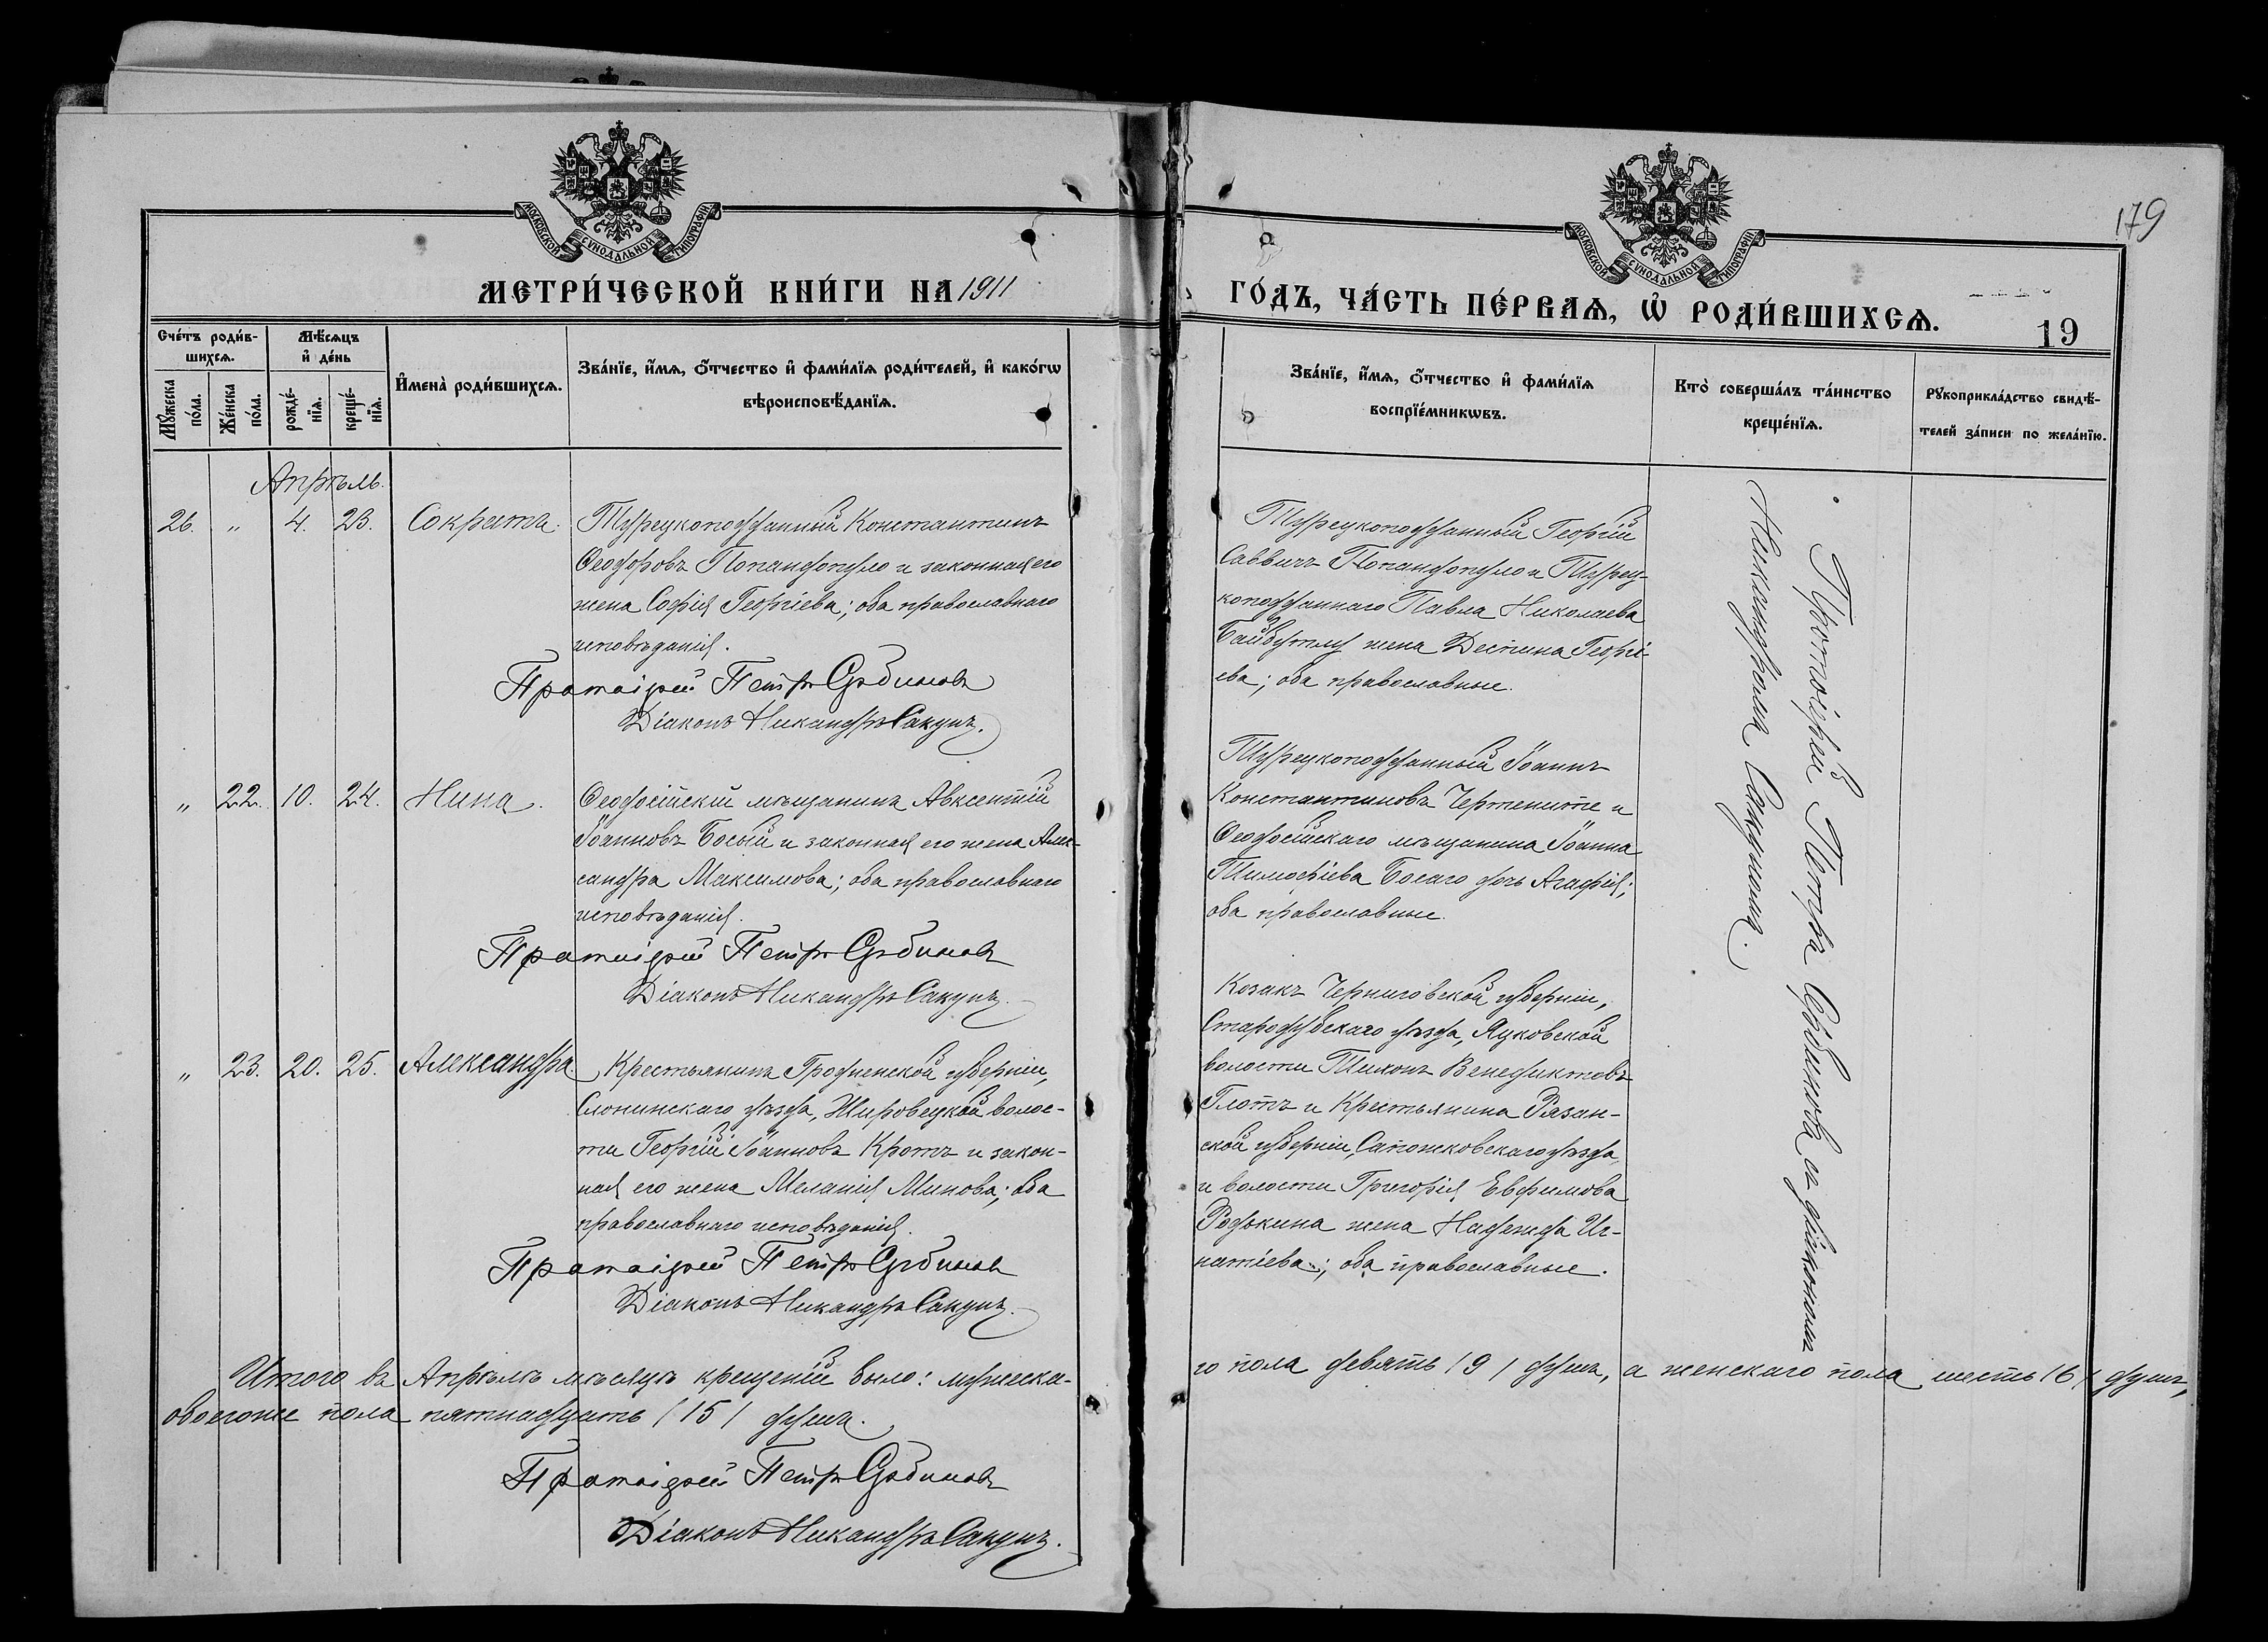 179
МОСКОВСКОЙ СѴНОДАЛЬНОЙ ТИПОГРАФІИ
МОСКОВСКОЙ СѴНОДАЛЬНОЙ ТИПОГРАФІИ
МЕТРИ́ЧЕСКОЙ КНИ́ГИ НА 1911
ГО́ДЪ, ЧА́СТЬ ПЕ́РВАѦ, Ѡ҆ РОДИ́ВШИХСѦ.
19
Сче́тъ роди́в-
шихсѧ.
Мꙋ́жеска по́ла.
Же́нска по́ла.
Мѣ́сѧцъ
и҆ де́нь
рожде́-
нїѧ.
креще́-
нїѧ.
И҆мена̀ роди́вшихсѧ.
Зва́нїе, и҆́мѧ, ѻ҆́тчество и҆ фами́лїѧ роди́телей, и҆ како́гѡ
вѣроисповѣ́данїѧ.
Зва́нїе, и҆́мѧ, ѻ҆́тчество и҆ фами́лїѧ
воспрїе́мникѡвъ.
Кто̀ соверша́лъ та́инство
креще́нїѧ.
Рꙋкоприкла́дство свидѣ́-
телей за́писи по жела́нїю.
Апрѣль.
26. " 4. 23. Сократъ.
Турецкоподданный Константинъ
Ѳеодоровъ Попандопуло и законная его
жена Софія Георгіева; оба православнаго
исповѣданія.
Протоіерей Петръ Сербиновъ
Діаконъ Никандръ Сакунъ.
Турецкоподданный Георгій
Саввичъ Попандопуло и Турец-
коподданнаго Павла Николаева
Байбуртлу жена Деспина Георгі-
ева; оба православные.
" 22. 10. 24. Нина.
Ѳеодосійскій мѣщанинъ Авксентій
Іоанновъ Босый и законная его жена Алек-
сандра Максимова; оба православнаго
исповѣданія.
Протоіерей Петръ Сербиновъ
Діаконъ Никандръ Сакунъ.
Турецкоподданный Іоаннъ
Константиновъ Чертените и
Ѳеодосійскаго мѣщанина Іоанна
Тимофіева Босаго дочь Агафія;
оба православные.
" 23. 20. 25. Александра.
Крестьянинъ Гродненской губерніи,
Слонимскаго уѣзда, Жировецкой волос-
ти Георгій Іоанновъ Кротъ и закон-
ная его жена Меланія Минова; оба
православнаго исповѣданія.
Протоіерей Петръ Сербиновъ
Діаконъ Никандръ Сакунъ.
Козакъ Черниговской губерніи,
Стародубскаго уѣзда, Яцковской
волости Тихонъ Венедиктовъ
Глотъ и Крестьянина Рязан-
ской губерніи, Сапожковскаго уѣзда
и волости Григорія Евфимова
Родькина жена Надежда Иг-
натіева; оба православные.
Протоіерей Петръ Сербиновъ съ діакономъ
Никандромъ Сакуномъ.
Итого въ Апрѣлѣ мѣсяцѣ крещеній было: мужеска-
го пола девять /9/ душъ, а женскаго пола шесть /6/ душъ,
обоегоже пола пятнадцать /15/ душъ.
Протоіерей Петръ Сербиновъ
Діаконъ Никандръ Сакунъ.